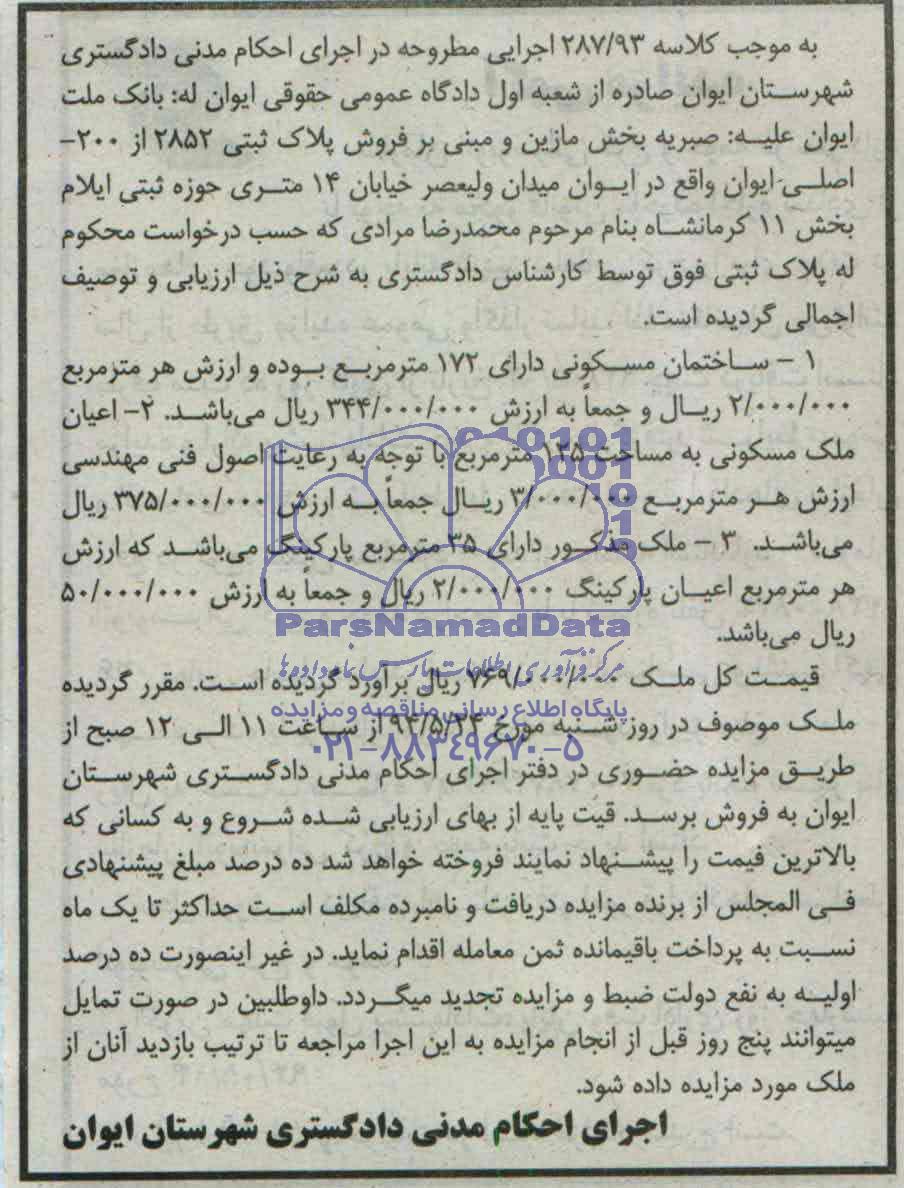 به موجب کلاسه ۲۸۷/۹۳ اجرایی مطروحه در اجرای احکام مدنی دادگستری
شهرستان ایوان صادره از شعبه اول دادگاه عمومی حقوقی ایوان له: بانک ملت
ایوان علیه: صبریه بخش مازین و مبنی بر فروش پلاک ثبتی ۲۸۵۲ از ۲۰۰-
اصلی ایوان واقع در ایوان میدان ولیعصر خیابان ۱۴ متری حوزه ثبتی ایلام
بخش ۱۱ کرمانشاه بنام مرحوم محمدرضا مرادی که حسب درخواست محکوم
له پلاک ثبتی فوق توسط کارشناس دادگستری به شرح ذیل ارزیابی و توصیف
اجمالی گردیده است.
۱ - ساختمان مسکونی دارای ۱۷۲ مترمربع بوده و ارزش هر مترمربع
۲/۰۰۰/۰۰۰ ریال و جمعاً به ارزش ۳۴۴/۰۰۰/۰۰۰ ریال می‌باشد. ۲- اعیان
ملک مسکونی به مساحت ۱۲۵ مترمربع با توجه به رعایت اصول فنی مهندسی
ارزش هر مترمربع ۳/۰۰۰/۰۰۰ ریال جمعاً به ارزش ۳۷۵/۰۰۰/۰۰۰ ریال
می‌باشد. ۳ - ملک مذکور دارای ۳۵ مترمربع پارکینگ می‌باشد که ارزش
هر مترمربع اعیان پارکینگ ۲/۰۰۰/۰۰۰ ریال و جمعاً به ارزش ۵۰/۰۰۰/۰۰۰
ParsNamadData
ریال می‌باشد.
مرکز فرآوری اطلاعات پارس نماد داده‌ها
قیمت کل ملک ۷۶۹/۰۰۰/۰۰۰ ریال برآورد گردیده است. مقرر گردیده
پایگاه اطلاع رسانی مناقصه و مزایده
ملک موصوف در روز شنبه مورخ ۹۴/۵/۲۴ از ساعت ۱۱ الی ۱۲ صبح از
۰۲۱-۸۸۳۴۹۶۷۰-۵
طریق مزایده حضوری در دفتر اجرای احکام مدنی دادگستری شهرستان
ایوان به فروش برسد. قیت پایه از بهای ارزیابی شده شروع و به کسانی که
بالاترین قیمت را پیشنهاد نمایند فروخته خواهد شد ده درصد مبلغ پیشنهادی
فی المجلس از برنده مزایده دریافت و نامبرده مکلف است حداکثر تا یک ماه
نسبت به پرداخت باقیمانده ثمن معامله اقدام نماید. در غیر اینصورت ده درصد
اولیه به نفع دولت ضبط و مزایده تجدید میگردد. داوطلبین در صورت تمایل
میتوانند پنج روز قبل از انجام مزایده به این اجرا مراجعه تا ترتیب بازدید آنان از
ملک مورد مزایده داده شود.
اجرای احکام مدنی دادگستری شهرستان ایوان